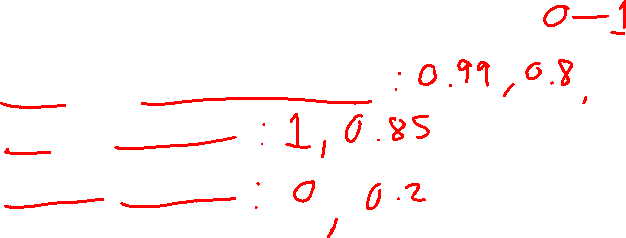 0—1
: 0.99, 0.8,
: 1, 0.85
: 0, 0.2